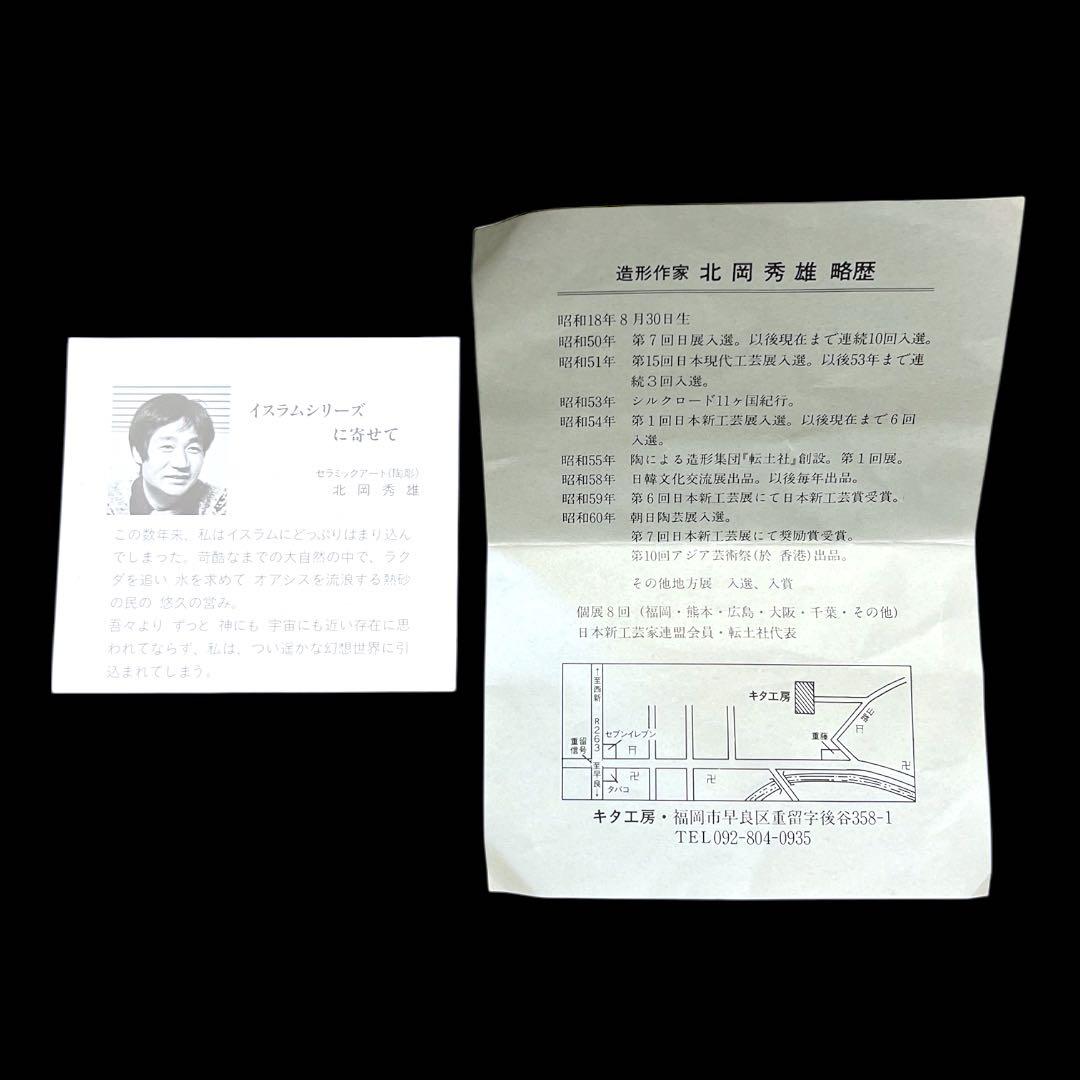 イスラムシリーズ
に寄せて
セラミックアート(陶彫)
北岡秀雄
この数年来、私はイスラムにどっぷりはまり込ん
でしまった。苛酷なまでの大自然の中で、ラク
ダを追い 水を求めて オアシスを流浪する熱砂
の民の 悠久の営み。
吾々より ずっと 神にも 宇宙にも近い存在に思
われてならず、私は、つい遥かな幻想世界に引
込まれてしまう。
造形作家 北岡秀雄 略歴
昭和18年8月30日生
昭和50年 第7回日展入選。以後現在まで連続10回入選。
昭和51年 第15回日本現代工芸展入選。以後53年まで連
続3回入選。
昭和53年 シルクロード11ヶ国紀行。
昭和54年 第1回日本新工芸展入選。以後現在まで6回
入選。
昭和55年 陶による造形集団『転土社』創設。第1回展。
昭和58年 日韓文化交流展出品。以後毎年出品。
昭和59年 第6回日本新工芸展にて日本新工芸賞受賞。
昭和60年 朝日陶芸展入選。
第7回日本新工芸展にて奨励賞受賞。
第10回アジア芸術祭(於 香港)出品。
その他地方展 入選、入賞
個展8回(福岡・熊本・広島・大阪・千葉・その他)
日本新工芸家連盟会員・転土社代表
↑至西新
R263
至早良↓
重留
信号
セブンイレブン
タバコ
キタ工房
重藤
キタ工房・福岡市早良区重留字後谷358-1
TEL092-804-0935